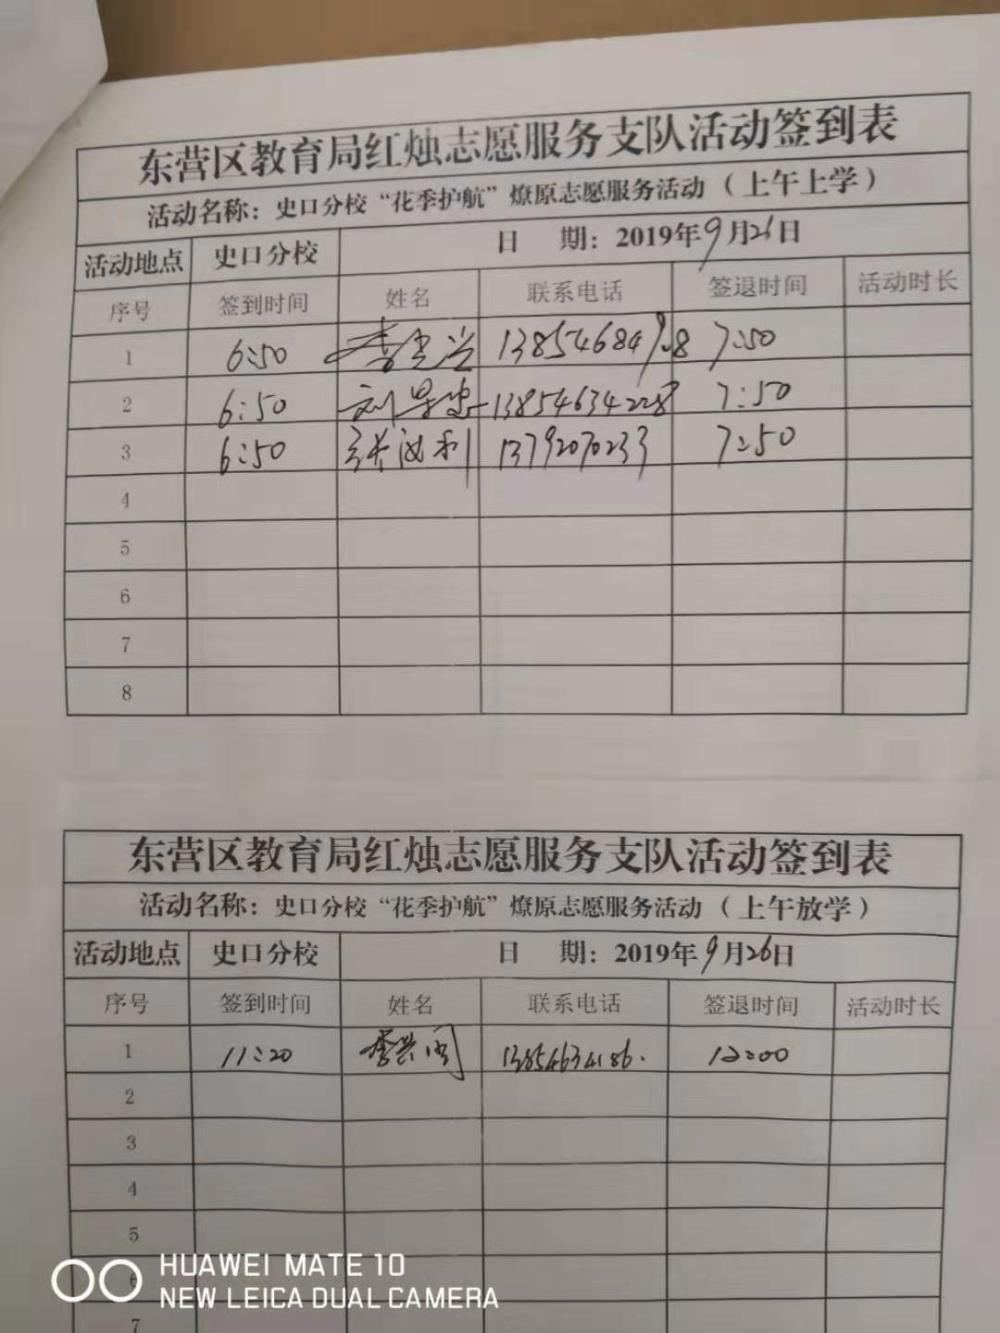 东营区教育局红烛志愿服务支队活动签到表
活动名称：史口分校“花季护航”燎原志愿服务活动（上午上学）
活动地点 史口分校 日 期：2019年9月26日
序号 签到时间 姓名 联系电话 签退时间 活动时长
1 6:50 7:50
2 6:50 刘 13854634228 7:50
3 6:50 张 利 13792070233 7:50
4
5
6
7
8
东营区教育局红烛志愿服务支队活动签到表
活动名称：史口分校“花季护航”燎原志愿服务活动（上午放学）
活动地点 史口分校 日 期：2019年9月26日
序号 签到时间 姓名 联系电话 签退时间 活动时长
1 11:20 13854634186. 12:00
2
3
4
5
6
7
HUAWEI MATE 10
NEW LEICA DUAL CAMERA